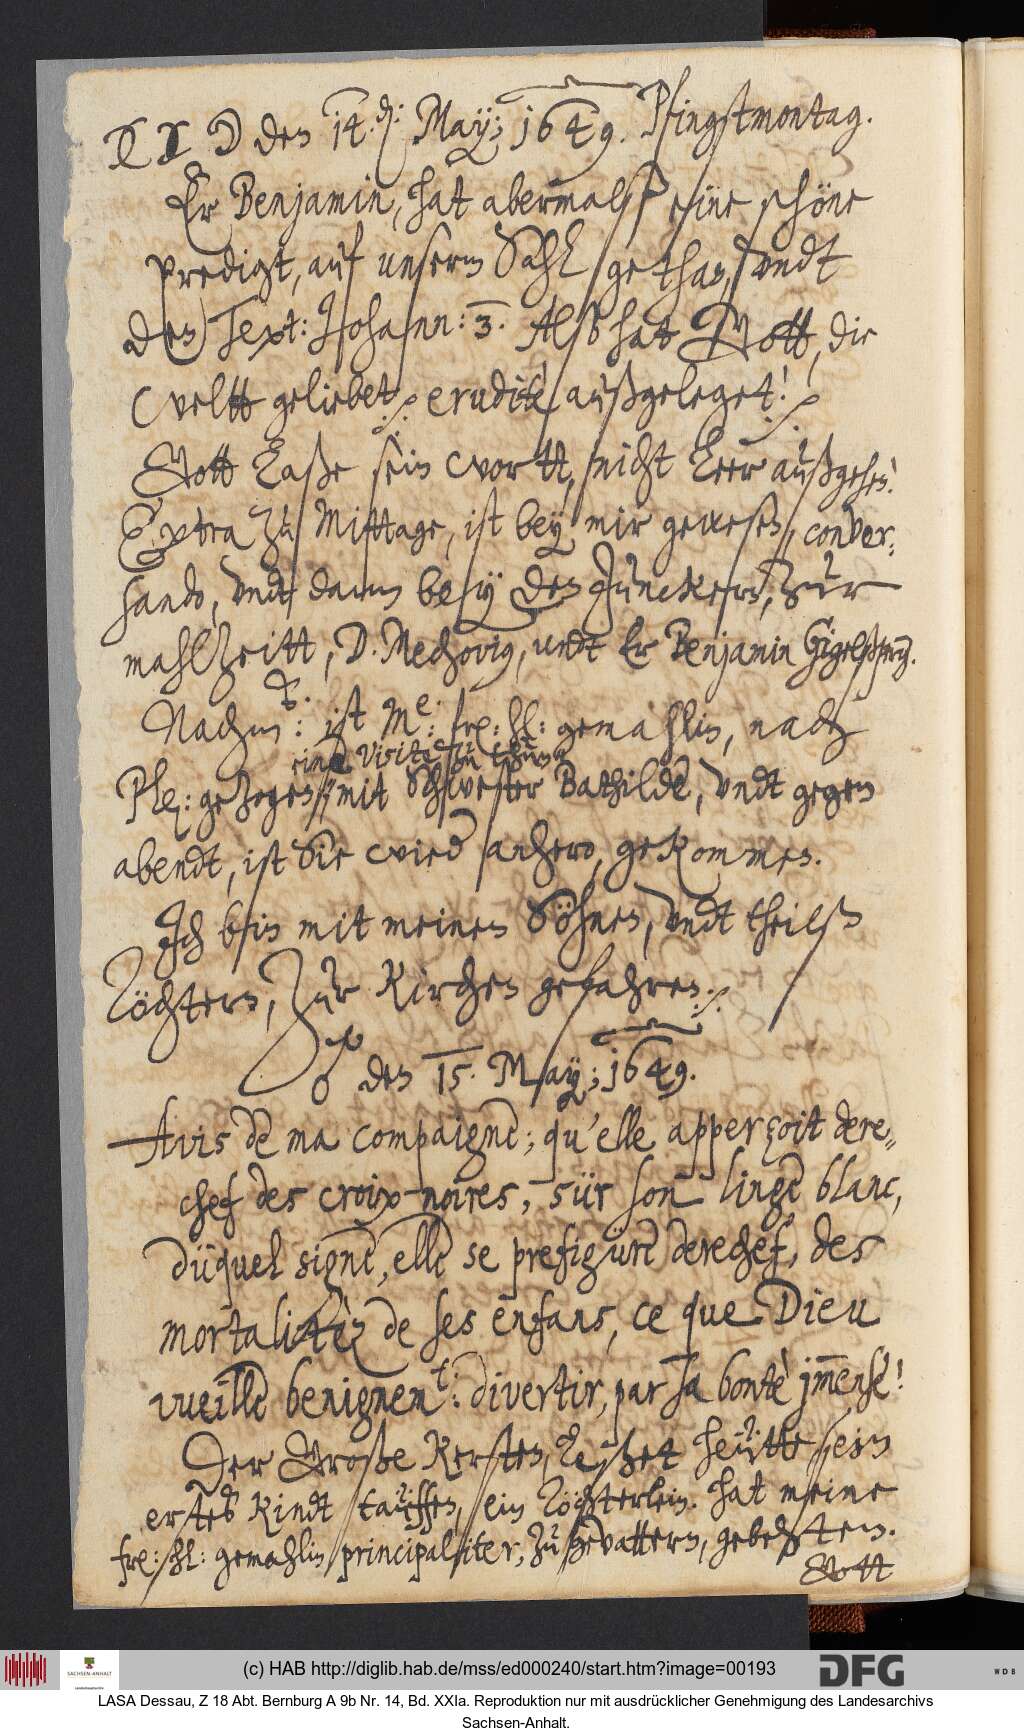 ☽ den 14. May; 1649. Pfingstmontag.
Er Benjamin, hat abermalß eine schöne
Predigt, auf unserm Sahl gethan, undt
den Text: Johann: 3. Alß hat Gott, die
weltt geliebet ⁒ eruditè außgeleget! ⁒
Gott laße sein wortt, nicht leer außgehen!
Extra zu Mittage, ist bey mir gewesen, conver:
sando, undt dann bey den Junckern, zur
mahlzeitt, D. Mechovig, undt Er Benjamin
Nachm: ist Me: fre: hl: gemahlin, nach
eine Visite zu thun
Ple: gezogen mit Schwester Bathilde, undt gegen
abendt, ist Sie wied anhero, gekommen.
Ich bin mit meinen Söhnen, undt theilß
Töchtern, zur Kirchen gefahren. ⁒
♂ den 15. May; 1649.
Avis de ma compaigne; qu'elle apperçoit dere„
chef des croix noires, sür son linge blanc,
düquel signe, elle se prefigüre derechef, des
mortalitèz de ses enfans, ce que Dieu
vueille benignemt: divertir, par sa bontè jm̄ense!
Der Große Kersten, leßet heütte sein
erstes Kindt tauffen, ein Töchterlein. hat meine
fre: hl: gemahlin principaliter, zu gevattern, gebehten.
Gott
(c) HAB http://diglib.hab.de/mss/ed000240/start.htm?image=00193
SACHSEN-ANHALT
DFG
WDB
LASA Dessau, Z 18 Abt. Bernburg A 9b Nr. 14, Bd. XXIa. Reproduktion nur mit ausdrücklicher Genehmigung des Landesarchivs
Sachsen-Anhalt.